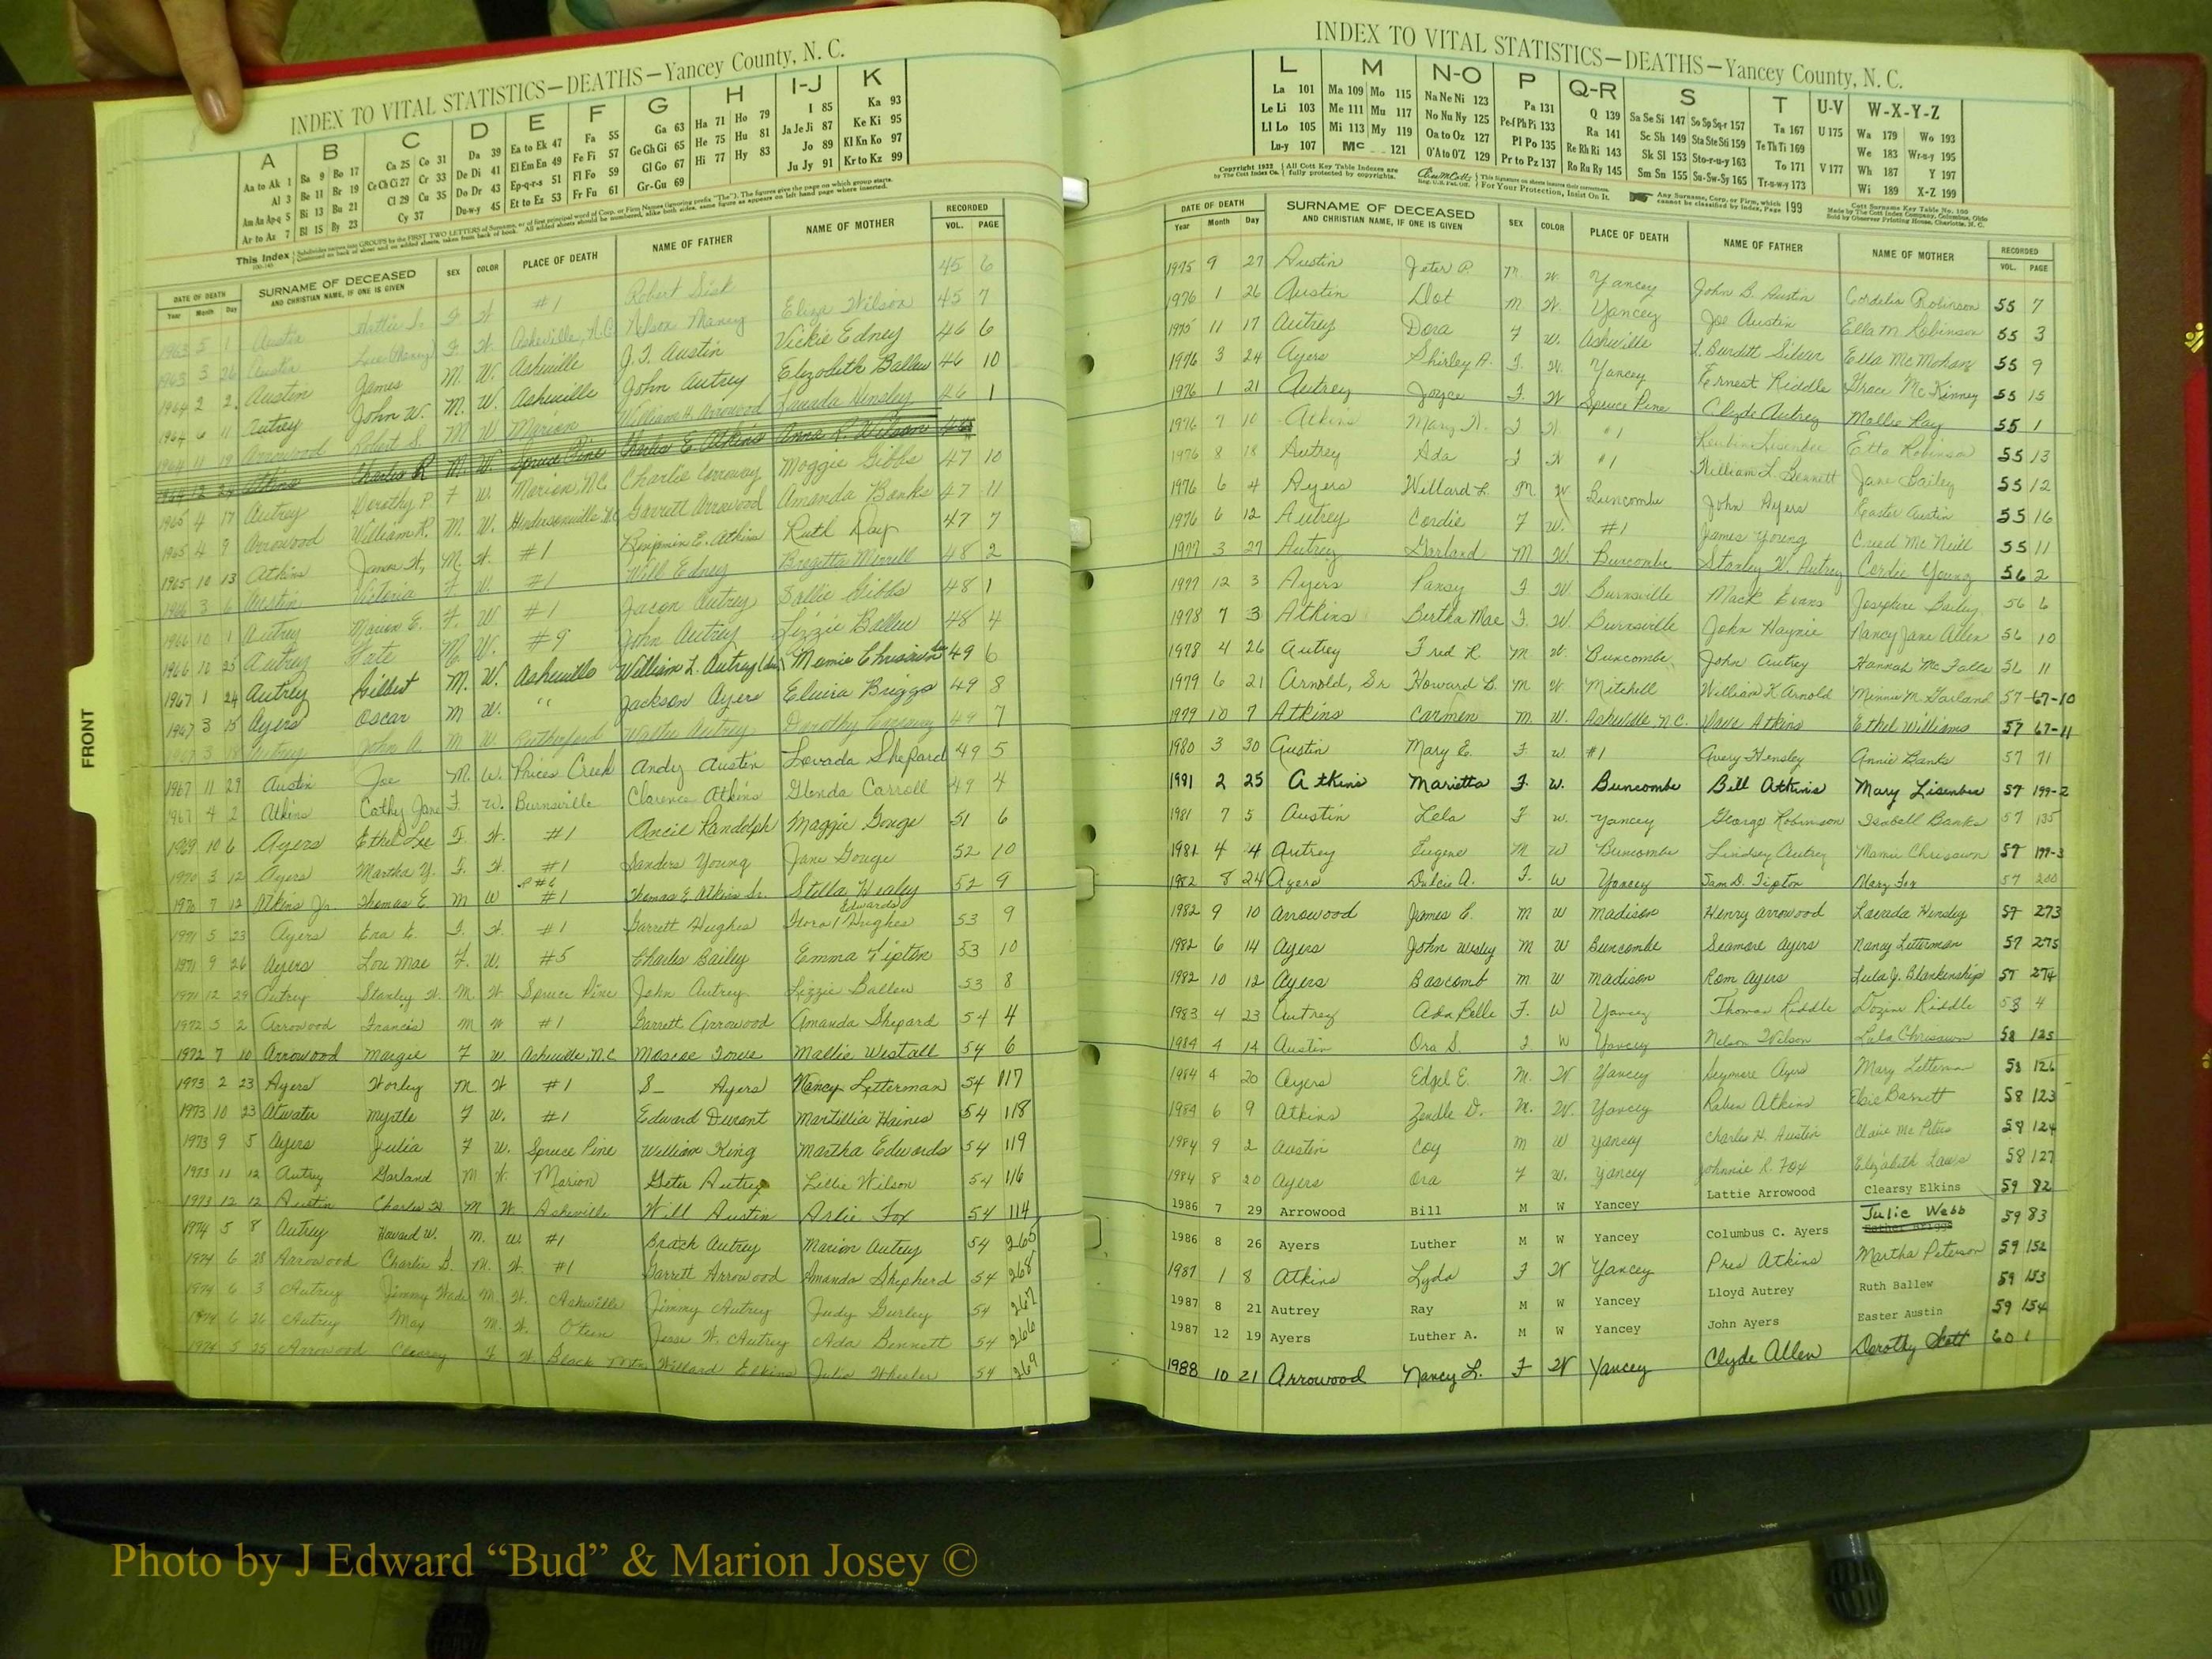 INDEX TO VITAL STATISTICS—DEATHS—Yancey County, N. C.
A B C D E F G H I-J K
Aa to Ak 1 Ba 9 Bo 17 Ca 25 Co 31 Da 39 Ea to Ek 47 Fa 55 Ga 63 Ha 71 Ho 79 I 85 Ka 93
Al 3 Be 11 Br 19 Ce Ch Ci 27 Cr 33 De Di 41 El Em En 49 Fe Fi 57 Ge Gh Gi 65 He 75 Hu 81 Ja Je Ji 87 Ke Ki 95
Am An Ap-q 5 Bi 13 Bu 21 Cl 29 Cu 35 Do Dr 43 Ep-q-r-s 51 Fl Fo 59 Gl Go 67 Hi 77 Hy 83 Jo 89 Kl Kn Ko 97
Ar to Az 7 Bl 15 By 23 Cy 37 Du-w-y 45 Et to Ez 53 Fr Fu 61 Gr-Gu 69 Ju Jy 91 Kr to Kz 99
DATE OF DEATH SURNAME OF DECEASED SEX COLOR PLACE OF DEATH NAME OF FATHER NAME OF MOTHER RECORDED
Year Month Day AND CHRISTIAN NAME, IF ONE IS GIVEN VOL. PAGE
1963 5 1 Austin Hattie S. F W #1 Robert Sisk 45 6
1963 3 26 Austin F W Asheville, N.C. Nelson Maney Eliza Wilson 45 7
1964 2 2 Austin James M. W. Asheville J. T. Austin Vickie Edney 46 6
1964 6 11 Autrey John W. M. W. Asheville John Autrey Elezobeth Ballew 46 10
1964 11 19 Arrowood Robert S. M W Marion William H. Arrowood Lavada Hensley 46 1
1964 12 24 Atkins Charles R M. W. Spruce Pine Charles E. Atkins Anna R. Wilson
1965 4 17 Autrey Dorothy P. F W. Marion, N.C. Charlie Corroway Moggie Gibbs 47 10
1965 4 9 Arrowood William R. M. W. Hendersonville N.C. Garrett Arrowood Amanda Banks 47 11
1965 10 13 Atkins James H, M. W. #1 Benjamin E. Atkins Ruth Day 47 7
1966 3 6 Austin Victoria F W. #1 Will Edney Brigetta Merrell 48 2
1966 10 1 Autrey Marion E. F. W #1 Jason Autrey Sallie Gibbs 48 1
1966 10 25 Autrey Nate M. W. #9 John Autrey Lizzie Ballew 48 4
1967 1 24 Autrey Gilbert M. W. Asheville William L. Autrey Mamie Chrisawn 49 6
1967 3 15 Ayers Oscar M W. " Jackson Ayers Elvira Briggs 49 8
1967 3 18 Autrey John A. M W. Rutherford Walter Autrey Dorothy Carraway 49 7
1967 11 29 Austin Joe M. W. Prices Creek Andy Austin Lovada Shepard 49 5
1967 4 2 Atkins Cathy Jane F. W. Burnsville Clarence Atkins Glenda Carroll 49 4
1969 10 6 Ayers Ethel Lee F. W. #1 Ancil Randolph Maggie Gouge 51 6
1970 3 12 Ayers Martha Y. F. W. #1 Sanders Young Jane Gouge 52 10
1970 7 12 Atkins Jr. Thomas E. M W #1 Thomas E Atkins Sr. Stella Healey 52 9
1971 5 23 Ayers Era E. F. W. #1 Garrett Hughes Flora Edwards Hughes 53 9
1971 9 26 Ayers Lou Mae F. W. #5 Charles Bailey Emma Tipton 53 10
1971 12 29 Autrey Stanley W. M W Spruce Pine John Autrey Lizzie Ballew 53 8
1972 5 2 Arrowood Francis M W #1 Garrett Arrowood Amanda Shepard 54 4
1972 7 10 Arrowood Margie F W. Asheville, N.C. Moscoe Mallie Westall 54 6
1973 2 23 Ayers Worley M W #1 S— Ayers Nancy Letterman 54 117
1973 10 23 Atwater Myrtle F W. #1 Edward Durant Martillia Haines 54 118
1973 9 5 Ayers Julia F W. Spruce Pine William King Martha Edwards 54 119
1973 11 12 Autrey Garland M W. Marion Geter Autrey Lillie Wilson 54 116
1973 12 12 Austin Charles W. M W Asheville Will Austin Arlie Fox 54 114
1974 5 8 Autrey Howard W. M. W. #1 Brack Autrey Marion Autrey 54 265
1974 6 28 Arrowood Charlie G. M. W. #1 Garrett Arrowood Amanda Shepherd 54 268
1974 6 3 Autrey Jimmy Wade M. W. Asheville Jimmy Autrey Judy Gurley 54 267
1974 6 26 Autrey Max M. W. Oteen Jesse W. Autrey Ada Bennett 54 266
1974 5 25 Arrowood Clearsy F W. Black Mtn Willard Elkins Julia Wheeler 54 269
FRONT
INDEX TO VITAL STATISTICS—DEATHS—Yancey County, N. C.
L M N-O P Q-R S T U-V W-X-Y-Z
La 101 Ma 109 Mo 115 Na Ne Ni 123 Pa 131 Q 139 Sa Se Si 147 So Sp Sq-r 157 Ta 167 U 175 Wa 179 Wo 193
Le Li 103 Me 111 Mu 117 No Nu Ny 125 Pe-f Ph Pi 133 Ra 141 Sc Sh 149 Sta Ste Sti 159 Te Th Ti 169 We 183 Wr-u-y 195
Ll Lo 105 Mi 113 My 119 Oa to Oz 127 Pl Po 135 Re Rh Ri 143 Sk Sl 153 Sto-r-u-y 163 To 171 V 177 Wh 187 Y 197
Lu-y 107 Mc 121 O'A to O'Z 129 Pr to Pz 137 Ro Ru Ry 145 Sm Sn 155 Su-Sw-Sy 165 Tr-u-w-y 173 Wi 189 X-Z 199
DATE OF DEATH SURNAME OF DECEASED SEX COLOR PLACE OF DEATH NAME OF FATHER NAME OF MOTHER RECORDED
Year Month Day AND CHRISTIAN NAME, IF ONE IS GIVEN VOL. PAGE
1975 9 27 Austin Jeter P. M W. Yancey John B. Austin Cordelia Robinson 55 7
1976 1 26 Austin Dot M W. Yancey Joe Austin Ella M. Robinson 55 3
1975 11 17 Autrey Dora F W. Asheville L. Burditt Silver Ella McMahan 55 9
1976 3 24 Ayers Shirley A. F. W. Yancey Ernest Riddle Grace McKinney 55 15
1976 1 21 Autrey Joyce F. W Spruce Pine Clyde Autrey Mallie Ray 55 1
1976 7 10 Atkins Mary F W #1 Reuben Lisenbee Etta Robinson 55 13
1976 8 18 Autrey Ada F W #1 William L. Bennett Jane Bailey 55 12
1976 6 4 Ayers Willard L. M W Buncombe John Ayers Easter Austin 55 16
1976 6 12 Autrey Cordie F W. #1 James Young Creed McNeill 55 11
1977 3 27 Autrey Garland M W. Buncombe Stanley W. Autrey Cordie Young 56 2
1977 12 3 Ayers Pansy F. W. Burnsville Mack Evans Josephine Bailey 56 6
1978 7 3 Atkins Bertha Mae F. W. Burnsville John Haynie Nancy Jane Allen 56 10
1978 4 26 Autrey Fred R. M W. Buncombe John Autrey Hannah McFalls 56 11
1979 6 21 Arnold, Sr Howard B. M W Mitchell William K Arnold Minnie M. Garland 57 67-10
1979 10 7 Atkins Carmen M. W. Asheville N.C. Dave Atkins Ethel Williams 57 67-11
1980 3 30 Austin Mary E. F. W #1 Avery Hensley Annie Banks 57 71
1981 2 25 Atkins Marietta F. W. Buncombe Bill Atkins Mary Lisenbee 57 199-2
1981 7 5 Austin Lela F W. Yancey George Robinson Isabell Banks 57 135
1981 4 4 Autrey Eugene M W Buncombe Lindsey Autrey Mamie Chrisawn 57 199-3
1982 8 24 Ayers Dulcie A. F. W Yancey Sam D. Tipton Mary Fox 57 200
1982 9 10 Arrowood James C. M W Madison Henry Arrowood Laveda Hensley 57 273
1982 6 14 Ayers John Wesley M W Buncombe Seamore Ayers Nancy Letterman 57 275
1982 10 12 Ayers Bascomb M W Madison Rom Ayers Lula J. Blankenship 57 274
1983 4 23 Autrey Ada Belle F. W Yancey Thomas Riddle Dozine Riddle 58 4
1984 4 14 Austin Ora S. F W Yancey Nelson Wilson Lula Chrisawn 58 125
1984 4 20 Ayers Edgel E. M. W Yancey Seymore Ayers Mary Letterman 58 126
1984 6 9 Atkins Zendle D. M. W. Yancey Atkins Barnett 58 123
1984 9 2 Austin Coy M W Yancey Charles H. Austin 58 124
1984 8 20 Ayers Ora F W. Yancey Johnnie R. Fox Elizabeth Laws 58 127
1986 7 29 Arrowood Bill M W Yancey Lattie Arrowood Clearsy Elkins 59 82
1986 8 26 Ayers Luther M W Yancey Columbus C. Ayers Julie Webb 59 83
1987 1 8 Atkins Lyda F W Yancey Pres Atkins Martha Peterson 59 152
1987 8 21 Autrey Ray M W Yancey Lloyd Autrey Ruth Ballew 59 153
1987 12 19 Ayers Luther A. M W Yancey John Ayers Easter Austin 59 154
1988 10 21 Arrowood Nancy L. F W Yancey Clyde Allen Dorothy Scott 60 1
Photo by J Edward “Bud” & Marion Josey ©